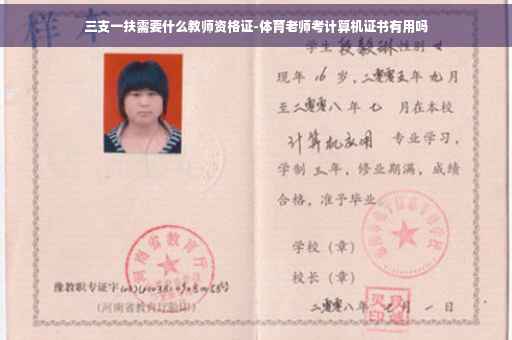 三支一扶需要什么教师资格证-体育老师考计算机证书有用吗
样本
学生 段毅琳 性别 女
现年 16 岁，二零零五年 九月
至二零零八年 七 月在本校
计算机应用 专业学习，
学制 三 年，修业期满，成绩
合格，准予毕业
河南省教育厅
学校（章）
校长（章）
豫教职专证字
（河南省教育厅验印）
二零零八年 七 月 一 日